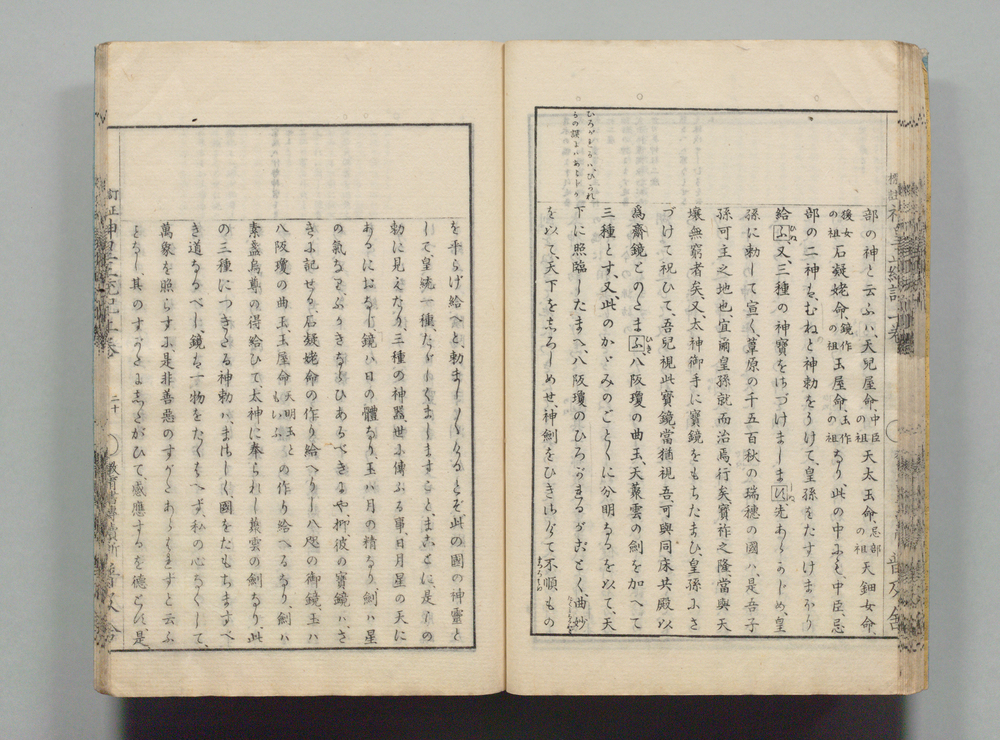 部の神と云ふハ、天兒屋命、中臣の祖天太玉命、忌部の祖天鈿女命、
猨女の祖石凝姥命、鏡作の祖玉屋命、玉作の祖なり、此の中にも、中臣、忌
部の二神ハ、むねと神勅をうけて、皇孫をたすけまほり
給ふ、又三種の神寶をさづけまします、先あらかじめ、皇
孫に勅して宣く、葦原の千五百秋の瑞穗の國ハ、是吾子
孫可主之地也、宜爾皇孫就而治焉、行矣、寶祚之隆、當與天
壤無窮者矣、又太神御手に寶鏡をもちたまひ、皇孫にさ
づけて祝ひて、吾兒視此寶鏡、當猶視吾、可與同床共殿以
爲齋鏡とのたまふ、八阪瓊の曲玉、天叢雲の劍を加へて
三種とす、又此のかゞみのごとくに分明なるを以て、天
下に照臨したまへ、八阪瓊のひろがるがごとく、曲妙
を以て、天下をしろしめせ、神劍をひきさげて不順もの
ひろがるハ、ひられ
標註
神皇正統記
を平らげ給へと、勅ましましけるとぞ、此の國の神靈と
して皇統一種、たゞしくましますこと、まことに、是らの
勅に見えたり、三種の神器、世に傳ふる事、日月星の天に
あるにおなじ、鏡ハ日の體なり、玉ハ月の精なり、劍ハ星
の氣なり、ふかきならひあるべきにや、抑彼の寶鏡ハ、さ
きに記せる、石凝姥命の作り給へりし八咫の御鏡、玉ハ
八阪瓊の曲玉、玉屋命天明玉ともいふの作り給へるなり、劍ハ
素盞烏尊の得給ひて太神に奉られし叢雲の劍なり、此
の三種につきたる神勅ハ、まさしく、國をたもちますべ
き道なるべし、鏡ハ一物をたくはへず、私の心なくして、
萬象を照らすに、是非善惡のすがたあらはれずと云ふ
ことなし、其のすがたにしたがひて、感應するを德とす、是
訂正
二十